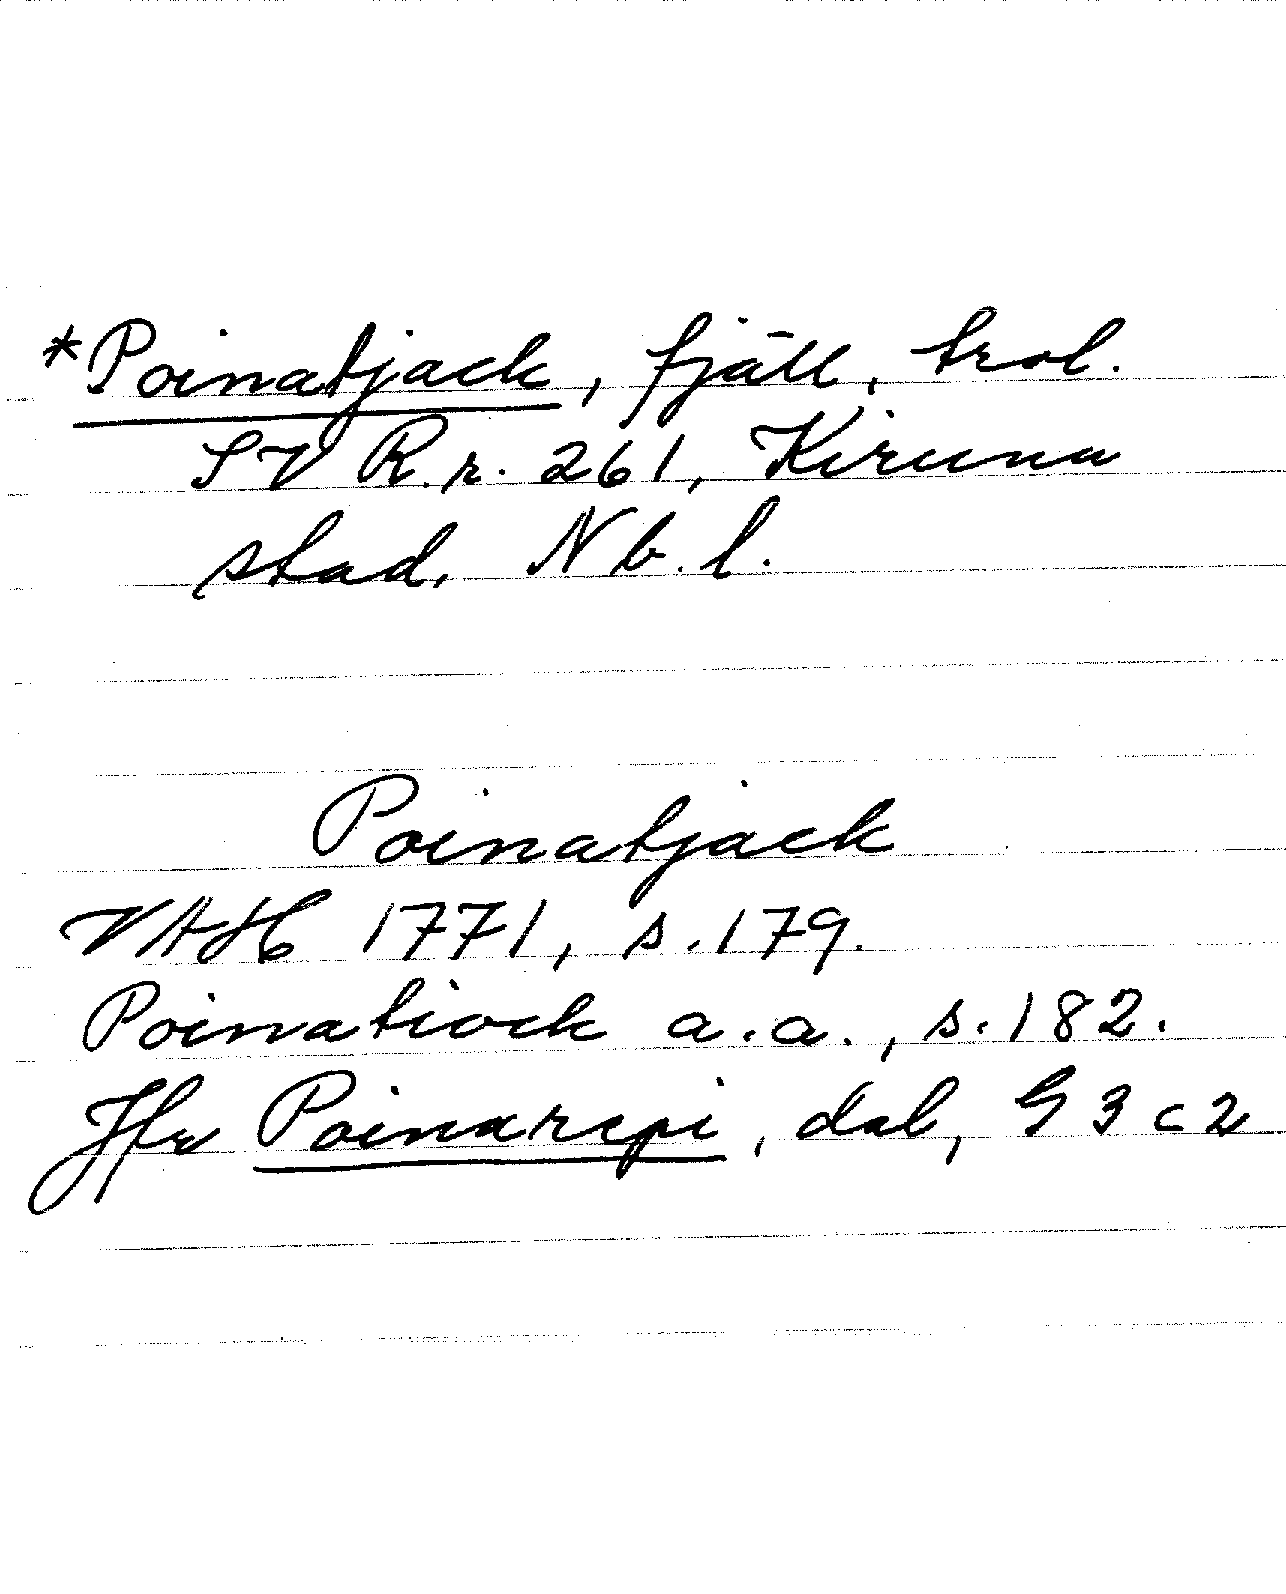 *Poinatjack, fjäll, trol.
SV R.r. 261, Kiruna
stad, Nb. l.
Poinatjack
VAH 1771, s. 179.
Poinatiock a.a., s. 182.
Jfr Poinarepi, dal, G 3 c 2